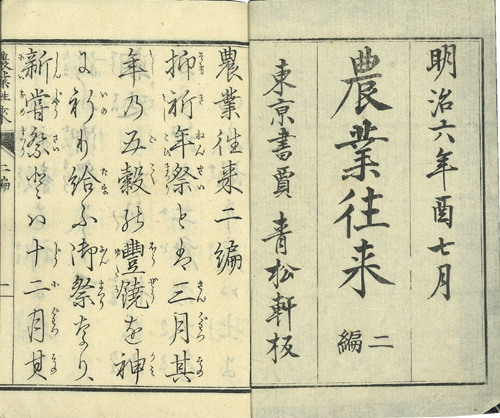 明治六年酉七月
農業往来 二編
東京書賈 青松軒板
農業往来二編
抑祈年祭とハ三月其
年乃五穀能豐饒を神
に祈り給ふ御祭なり、
新嘗祭とハ十二月其
農業往来 二編 一